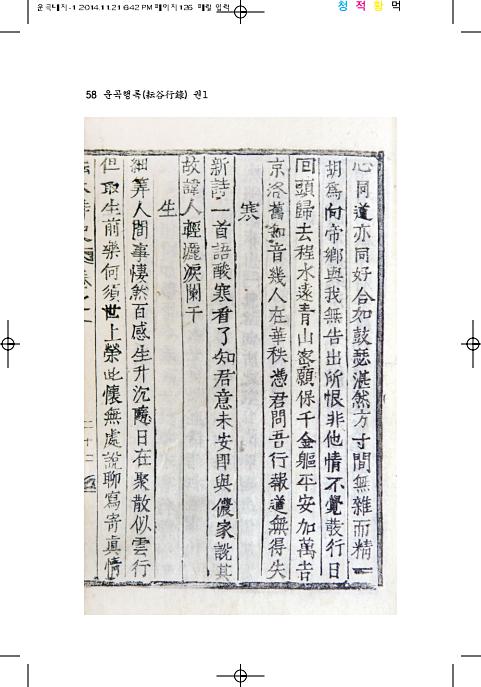 운곡대지-1 2014.11.21 6:42 PM 페이지126 매킬 입력
청 적 황 먹
58 운곡행록(耘谷行錄) 권1
心同道亦同好合如鼓瑟湛然方寸間無雜而精一
胡爲向帝鄕與我無告出所恨非他情不覺裝行日
回頭歸去程水遠靑山密願保千金軀平安加萬吉
京洛舊知音幾人在華秩憑君問吾行報道無得失
寒
新詩一首語酸寒看了知君意未安卽與儂家說其
故諱人輕灑淚闌干
生
細筭人間事悽然百感生升沉隨日在聚散似雲行
但取生前樂何須世上榮此懷無處說聊寫寄眞情